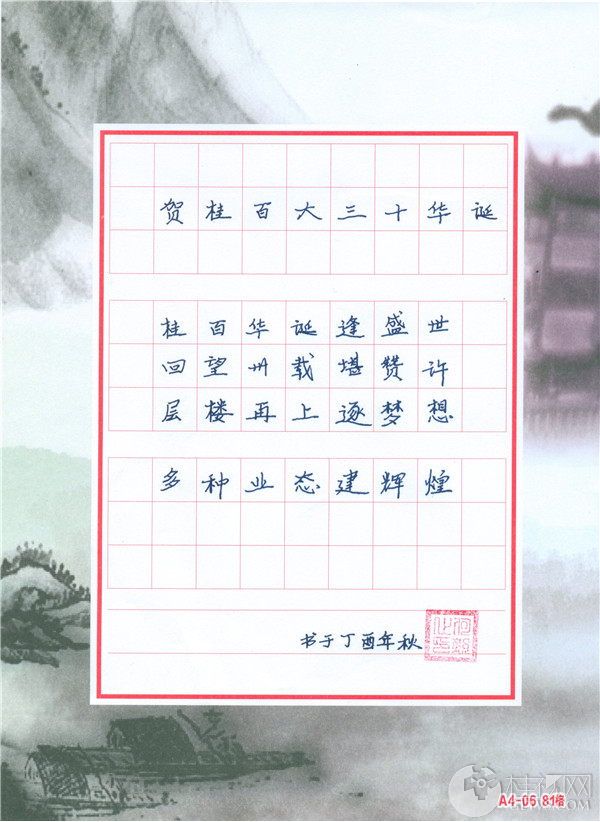 贺桂百大三十华诞
桂百华诞逢盛世
回望卅载堪赞许
层楼再上逐梦想
多种业态建辉煌
书于丁酉年秋
A4-06 81格